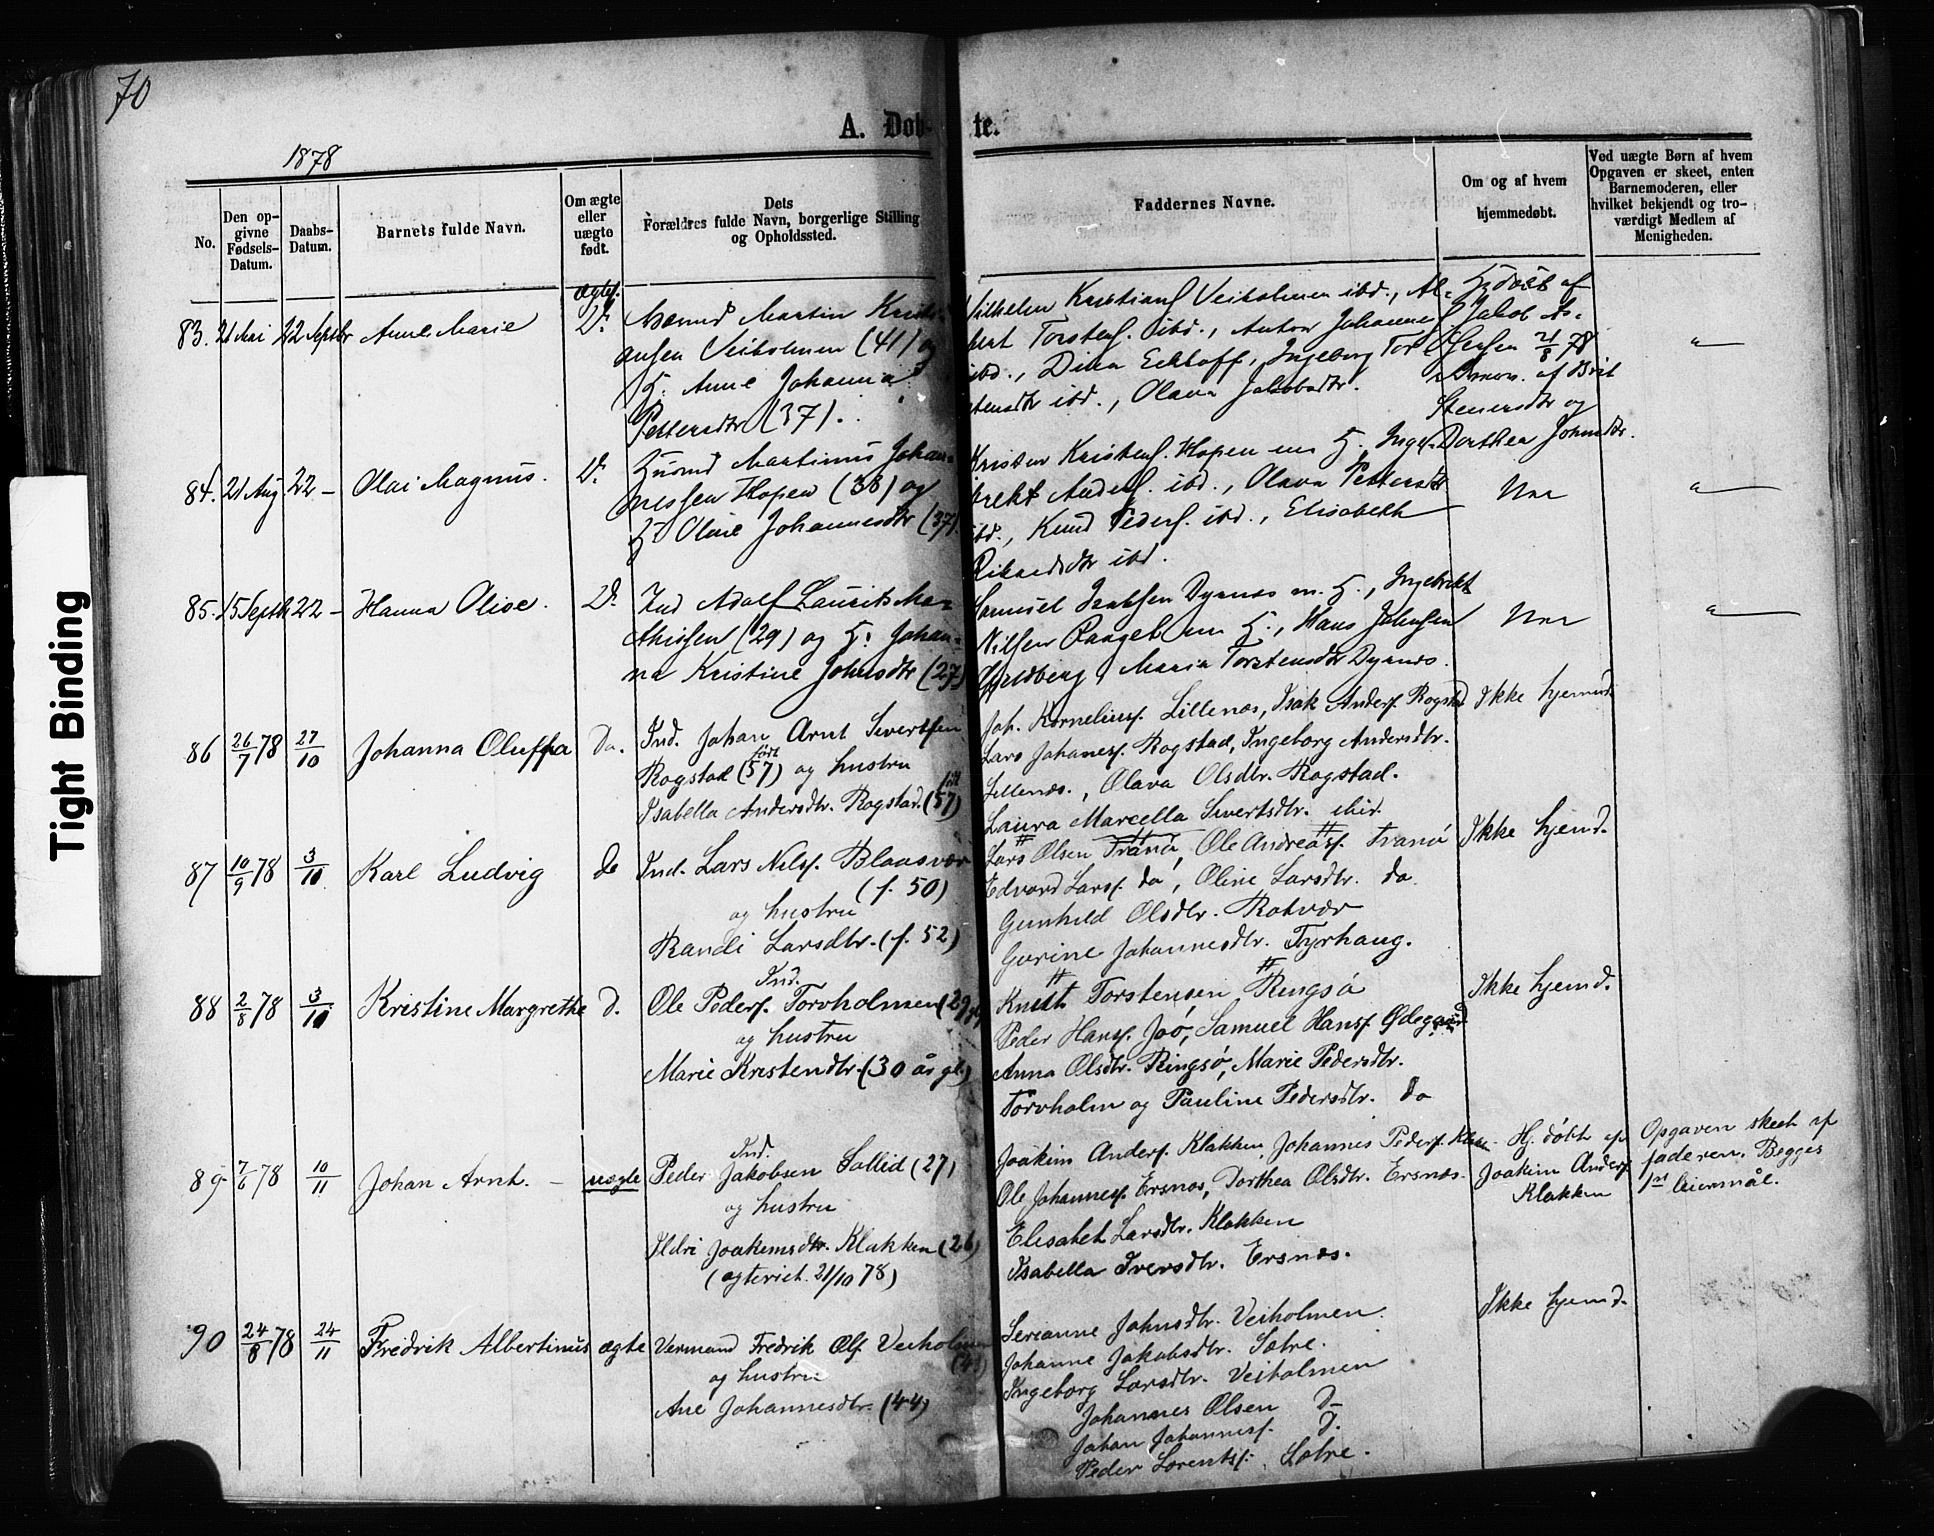 70
A. Døbte.
1878
No.
Den opgivne Fødsels-Datum.
Daabs-Datum.
Barnets fulde Navn.
Om ægte eller uægte født.
Dets Forældres fulde Navn, borgerlige Stilling og Opholdssted.
Faddernes Navne.
Om og af hvem hjemmedøbt.
Ved uægte Børn af hvem Opgaven er skeet, enten Barnemoderen, eller hvilket bekjendt og troværdigt Medlem af Menigheden.
83. 21 Mai 22 Septbr Anne Marie ægtef. D.
Martin Kristi-
ansen Veiholmen (41) og
H. Anne Johanna
Pettersdtr (37).
Vilhelm Kristians. Veiholmen ibd., Al-
bert Torstens. ibd., Anton Johannes.
ibd., Dina Eckhoff, Ingeborg Tor-
stensdtr ibd., Olava Jakobsdtr.
Hjdøbt af
Jakob As-
21/8 78
af Brit
Steffensdtr og
Dorthea Johnsdtr.
84. 21 Aug 22 – Olai Magnus. D.
Husmd Martinus Johan-
nessen Hopen (38) og
H. Oline Johannesdtr (37).
Kristen Kristens. Hopen m H., Inge-
brekt Anders. ibd., Olava Pettersdtr
ibd., Knud Peders. ibd., Elisabeth
Rikardsdtr ibd.
Nei
85. 15 Septbr 22 – Hanna Olise. D.
Ind Adolf Laurits Ma-
thissen (29) og H. Johan-
na Kristine Johnsdtr (27)
Samuel Isaksen Dyrnæs m. H., Ingebrikt
Nilsen Ranget m H., Hans Johnsen
Maria Torstensdtr Dyrnæs.
Nei
86 26/7 78 27/10 Johanna Oluffa Do.
Ind. Johan Arnt Sivertsen
Rogstad (født 57) og hustru
Isabella Andersdtr. Rogstad. (født 57)
Joh. Kornelius. Lillenæs, Isak Anders. Rogstad
Lars Johanes. Rogstad, Ingeborg Andersdtr.
Lillenæs., Olava Olsdtr. Rogstad.
Laura Marcella Sivertsdtr. ibid.
Ikke hjemd.
87 10/9 78 3/10 Karl Ludvig do
Ind. Lars Nils. Blaasvær
(f. 50)
og hustru
Randi Larsdtr. (f. 52)
Lars Olsen Tranø, Ole Andreas. Tranø
Edvard Lars. do, Oline Larsdtr. do.
Gunhild Olsdtr. Rotvær
Gurine Johannesdtr. Tyrhaug.
Ikke hjemd.
88 2/8 78 3/10 Kristine Margrethe d.
Ind.
Ole Peders. Torvholmen (29 gl)
og hustru
Marie Kristendtr. (30 år gl.)
Knudt Torstensen Ringsø
Peder Hans. Jøø, Samuel Hans. Ødegård
Anna Olsdtr. Ringsø, Marie Pedersdtr.
Torvholm og Pauline Pedersdtr. do
Ikke hjemd.
89 7/6 78 10/11 Johan Arnt. – uægte
Ind.
Peder Jakobsen Sollid (27)
og hustru
Ildri Joakimsdtr. Klakken (26)
(ægteviet. 21/10 78)
Joakim Anders. Klakken, Johannes Peders. Klak-
Ole Johannes. Ersnæs, Dorthea Olsdtr. Ersnæs.
Elisabet Larsdtr. Klakken
Isabella Iversdtr. Ersnæs.
Hj. døbt af
Joakim Anders.
Klakken
Opgaven skeet af
faderen. Begges
1ste leiermål.
90 24/8 78 24/11 Fredrik Albertinus ægte
Fredrik Ols. Veiholmen
(43)
og hustru
Ane Johannesdtr. (44)
Serianne Johnsdtr. Veiholmen.
Johanne Jakobsdtr. Sætre.
Ingeborg Larsdtr. Veiholmen
Johannes Olsen D–
Johan Johannes. D.
Peder Lorents. Sætre.
Ikke hjemd.
Tight Binding